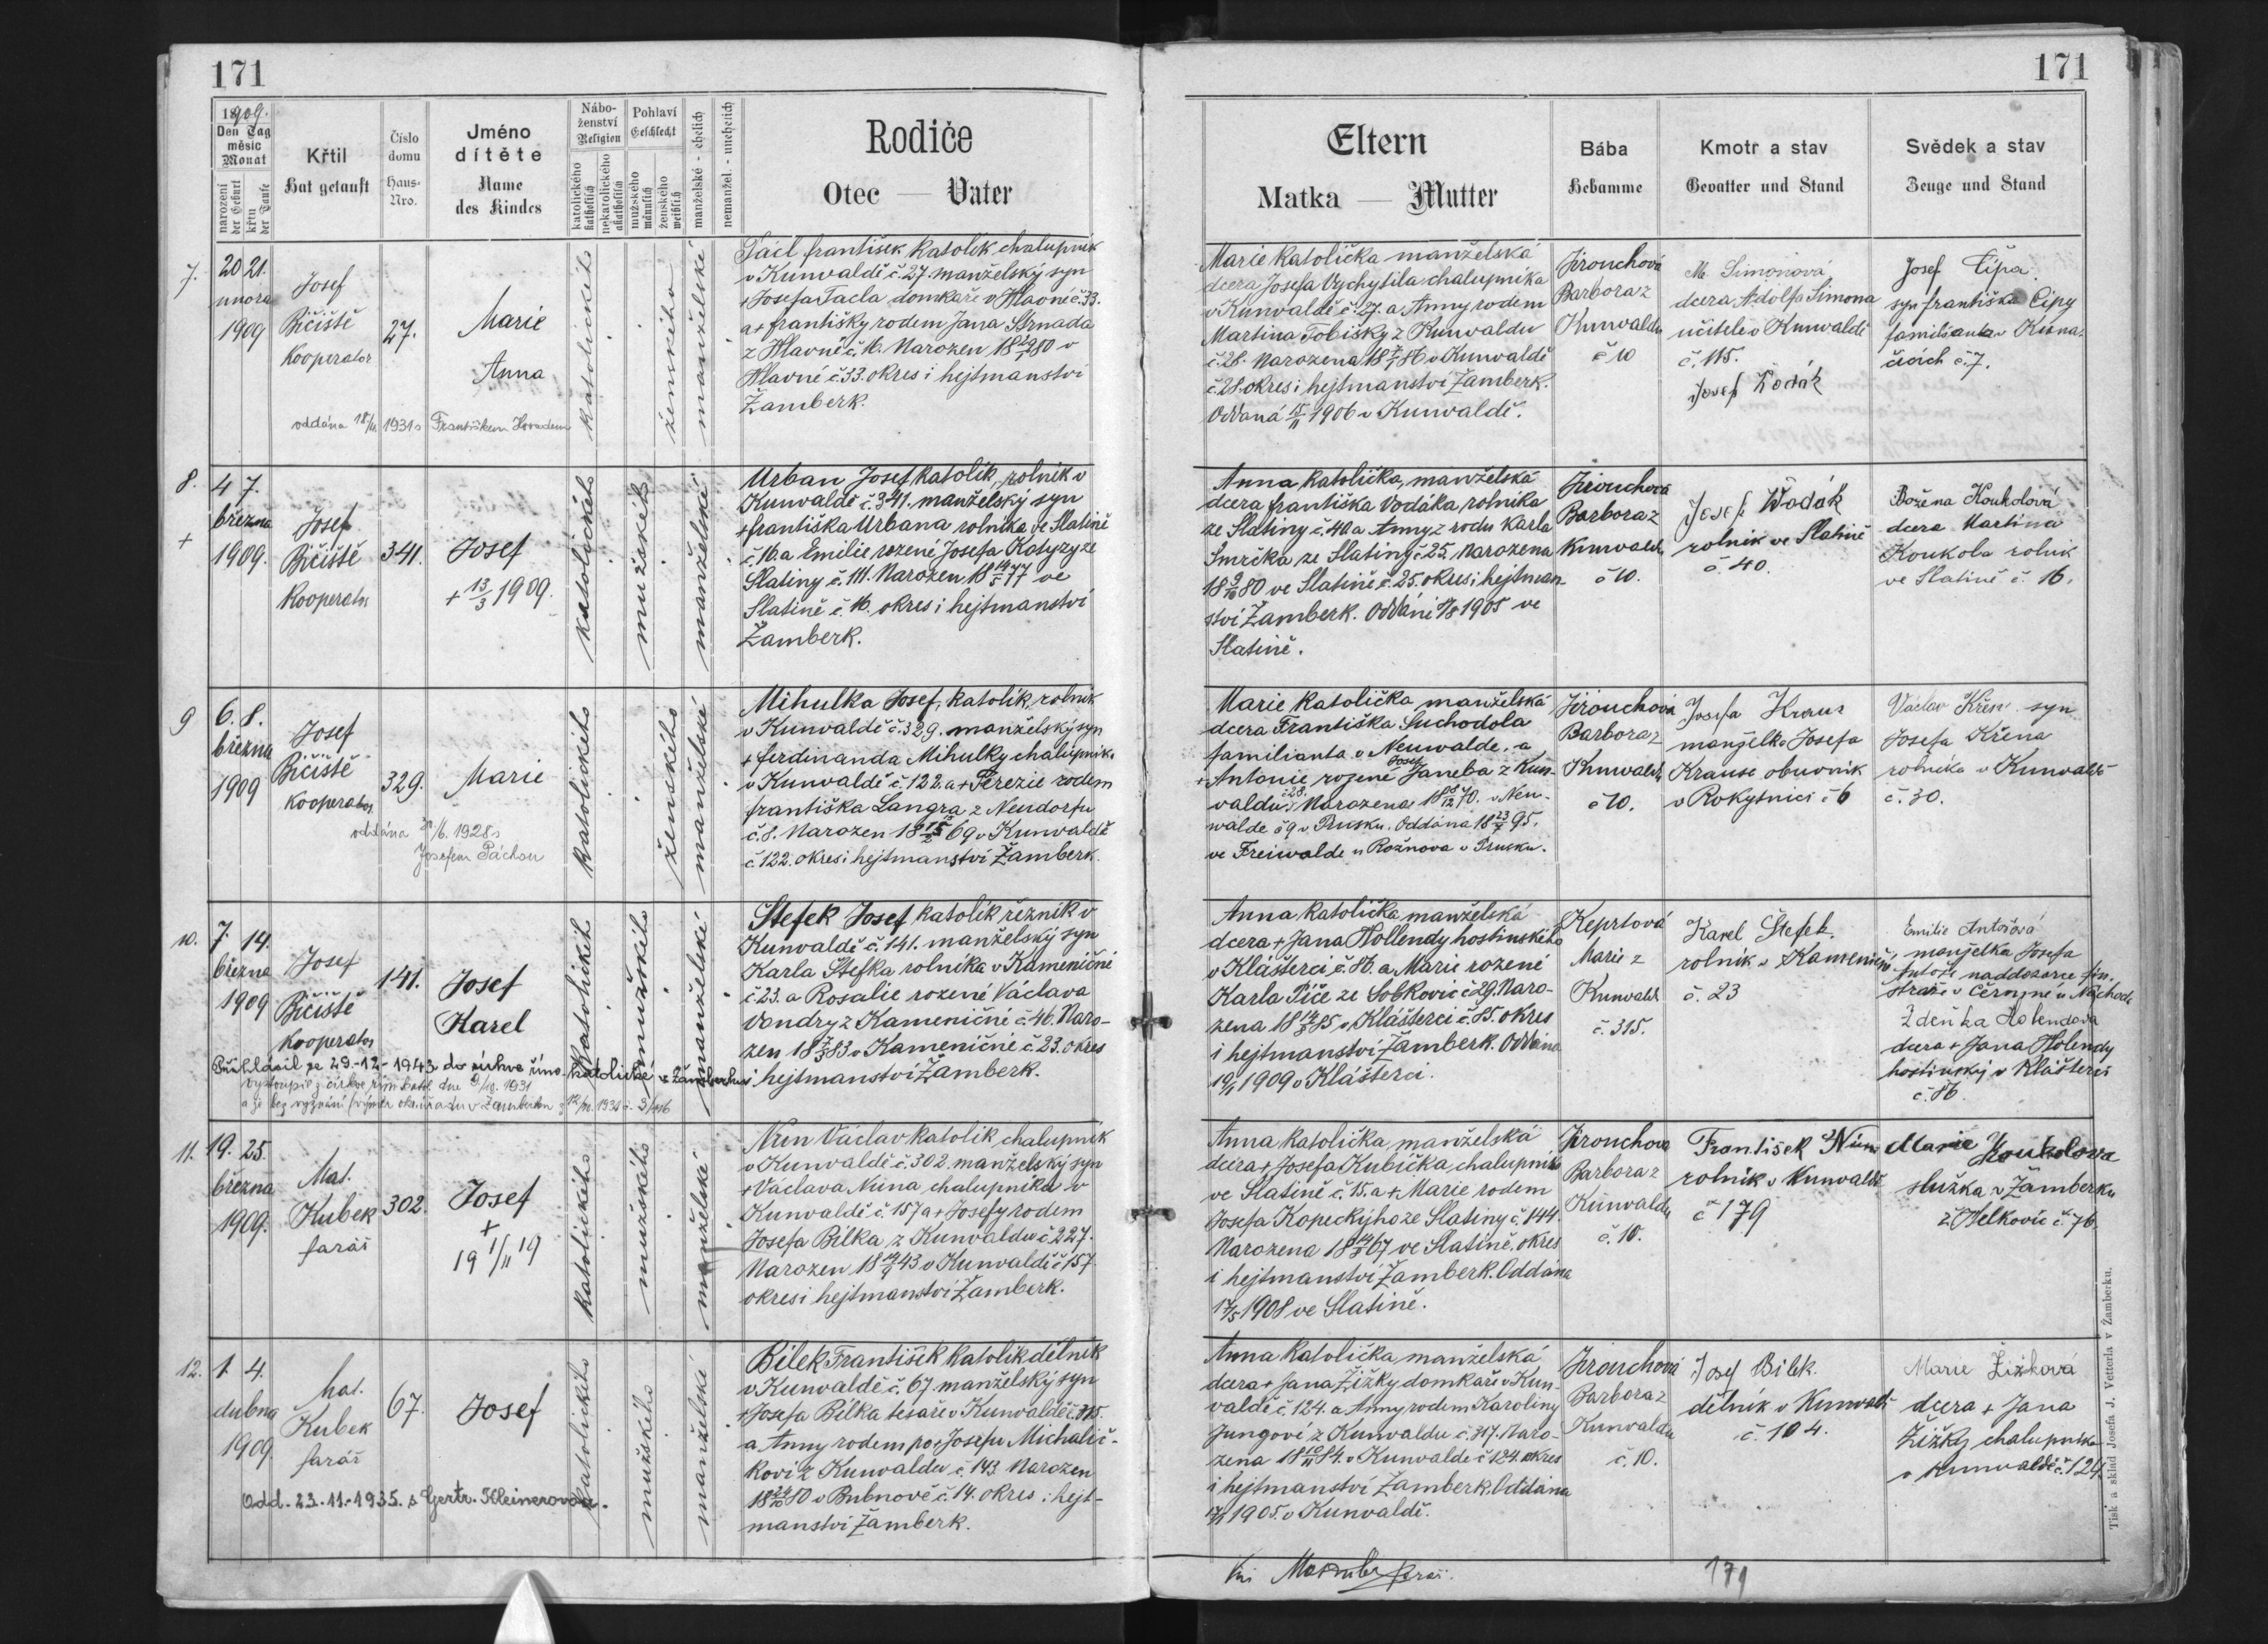 171
1909.
Den Tag
měsíc
Monat
narození
der Geburt
křtu
der Taufe
Křtil
Hat getauft
Číslo
domu
Haus-
Nro.
Jméno
dítěte
Name
des Kindes
Nábo-
ženství
Religion
katolického
katholisch
nekatolického
akatholisch
Pohlaví
Geschlecht
mužského
männlich
ženského
weiblich
manželské - ehelich
nemanžel. - unehelich
Rodiče
Otec — Vater
7.
20 21.
února
1909
Josef
Bičiště
Kooperator
27.
Marie
Anna
oddána 18/11. 1931 s Františkem Hovadem
katolického
ženského
manželské
Tacl František katolík chalupník
v Kunvaldě č. 27. manželský syn
+ Josefa Tacla domkaře v Hlavné č. 33.
a + Františky rodem Jana Strnada
z Hlavné č. 16. Narozen 1880 v
Hlavné č. 33. okres i hejtmanství
Žamberk.
8.
4 7.
března
+
1909.
Josef
Bičiště
Kooperator
341.
Josef
+ 13/3 1909.
katolického
mužského
manželské
Urban Josef, katolík, rolník v
Kunvaldě č. 341. manželský syn
+ Františka Urbana rolníka ve Slatině
č. 16 a Emilie rozené Josefa Katyzy ze
Slatiny č. 111. Narozen 18 14/5 77 ve
Slatině č. 16. okres i hejtmanství
Žamberk.
9
6. 8.
března
1909
Josef
Bičiště
Kooperator
329.
Marie
oddána /6. 1928 s
Josefem Páchou
katolického
ženského
manželské
Mihulka Josef, katolík, rolník
v Kunvaldě č. 329. manželský syn
+ Ferdinanda Mihulky chalupník.
v Kunvaldě č. 122. a + Terezie rodem
Františka Langra z Neudorfu
č. 8. Narozen 18 69 v Kunvaldě
č 122. okres i hejtmanství Žamberk.
10.
7. 14.
března
1909
Josef
Bičiště
Kooperator
141.
Josef
Karel
Přihlásil se 29.-12.-1943 do církve římo-katolické v Žamberku
Vystoupil z církve řím. katol. dne 9/10. 1931
a je bez vyznání (výměr okr. úřadu v Žamberku z 12/10. 1931 č.
katolického
mužského
manželské
Štefek Josef katolík řezník v
Kunvaldě č. 141. manželský syn
Karla Štefka rolníka v Kameničné
č 23. a Rosalie rozené Václava
Vondry z Kameničné č. 46. Naro-
zen 18 7/3 83 v Kameničné č. 23. okres
i hejtmanství Žamberk.
11.
19. 25.
března
1909.
Mat.
Kubek
farář
302.
Josef
+
19 1/11 19
katolického
mužského
manželské
Nun Václav katolík, chalupník
v Kunvaldě č. 302. manželský syn
+ Václava Nuna, chalupníka v
Kunvaldě č. 157 a + Josefy rodem
Josefa Bílka z Kunvaldu č 227.
Narozen 1843 v Kunvaldě č 157.
okres i hejtmanství Žamberk.
12.
1. 4.
dubna
1909.
Mat.
Kubek
farář
67.
Josef
Odd. 23.-11.-1935. s Gertr. Kleinerovou.
katolického
mužského
manželské
Bílek František katolík dělník
v Kunvaldě č. 67 manželský syn
+ Josefa Bílka tesaře v Kunvaldě č. 315.
a Anny rodem po + Josefu Michalič-
kovi z Kunvaldu č. 143. Narozen
18 24/10 80 v Bubnově č. 14. okres i hejt-
manství Žamberk.
171
Eltern
Matka — Mutter
Bába
Hebamme
Kmotr a stav
Gevatter und Stand
Svědek a stav
Zeuge und Stand
Marie katolička manželská
dcera Josefa Vychytila chalupníka
v Kunvaldě č. 27. a Anny rodem
Martina Tobišky z Kunvaldu
č. 28. Narozena 1886 v Kunvaldě
č. 28. okres i hejtmanství Žamberk.
Oddaná 15/11 1906 v Kunvaldě.
Jirouchová
Barbora z
Kunvaldu
č 10
M. Simonová
dcera Adolfa Simona
učitele v Kunvaldě
č. 115.
Josef Kodák
Josef Čípa
syn Františka Čípy
familianta v Kuna-
čicích č. 7.
Anna katolička, manželská
dcera Františka Vodáka, rolníka
ze Slatiny č. 40 a Anny z rodu Karla
Smrčka ze Slatiny č 25. Narozena
18 9/10 80 ve Slatině č. 25. okres i hejtman-
ství Žamberk. Oddáni 1905 ve
Slatině.
Jirouchová
Barbora z
Kunvaldu
č 10.
Josef Vodák
rolník ve Slatině
č. 40.
Božena Koukolová
dcera Martina
Koukola rolník
ve Slatině č. 16.
Marie katolička, manželská
dcera Františka Suchodola
familianta v Neuwalde. a
+ Antonie rozené Josef Janeba z Kun-
valdu č 28. Narozena 18 8/12 70. v Neu-
walde č 9 v Prusku. Oddána 18 23/7 95.
ve Freiwalde u Rožnova v Prusku.
Jirouchová
Barbora z
Kunvaldu
č 10.
Josefa Kraus
manželka Josefa
Krause obuvník
v Rokytnici č 6
Václav Křen syn
Josefa Křena
rolníka v Kunvaldě
č. 30.
Anna katolička manželská
dcera + Jana Hollendy hostinského
v Klášterci č. 86. a Marie rozené
Karla Píče ze Sobkovic č 29. Naro-
zena 1885 v Klášterci č. 85. okres
i hejtmanství Žamberk. Oddána
1909 v Klášterci.
Keprtová
Marie z
Kunvald
č. 315.
Karel Štefek.
rolník v Kameničné
č. 23
Emilie Antošová
manželka Josefa
Antoše naddozorce fin.
stráže v Čermné u Náchoda
Zdeňka Holendova
dcera + Jana Holendy
hostinský v Klášterci
č. 86.
Anna katolička, manželská
dcera + Josefa Kubíčka, chalupníka
ve Slatině č. 15. a + Marie rodem
Josefa Kopeckýho ze Slatiny č. 144.
Narozena 1867 ve Slatině, okres
i hejtmanství Žamberk. Oddána
17/5 1908 ve Slatině.
Jirouchová
Barbora z
Kunvaldu
č. 10.
František Nun
rolník v Kunvaldě
č 179
Marie Koukolova
služka v Žamberku
z Helkovic č. 76.
Anna katolička, manželská
dcera + Jana Žižky domkaře v Kun-
valdě č. 124. a Anny rodem Karoliny
Jungové z Kunvaldu č. 317. Naro-
zena 18 10/11 84. v Kunvaldě č 124. okres
i hejtmanství Žamberk. Oddána
1905. v Kunvaldě.
Jirouchová
Barbora z
Kunvaldu
č. 10.
Josef Bílek.
dělník v Kunvaldě
č. 104.
Marie Žižková
dcera + Jana
Žižky chalupníka
v Kunvaldě č. 124.
farář.
171
Tisk a sklad Josefa J. Vetterla v Žamberku.